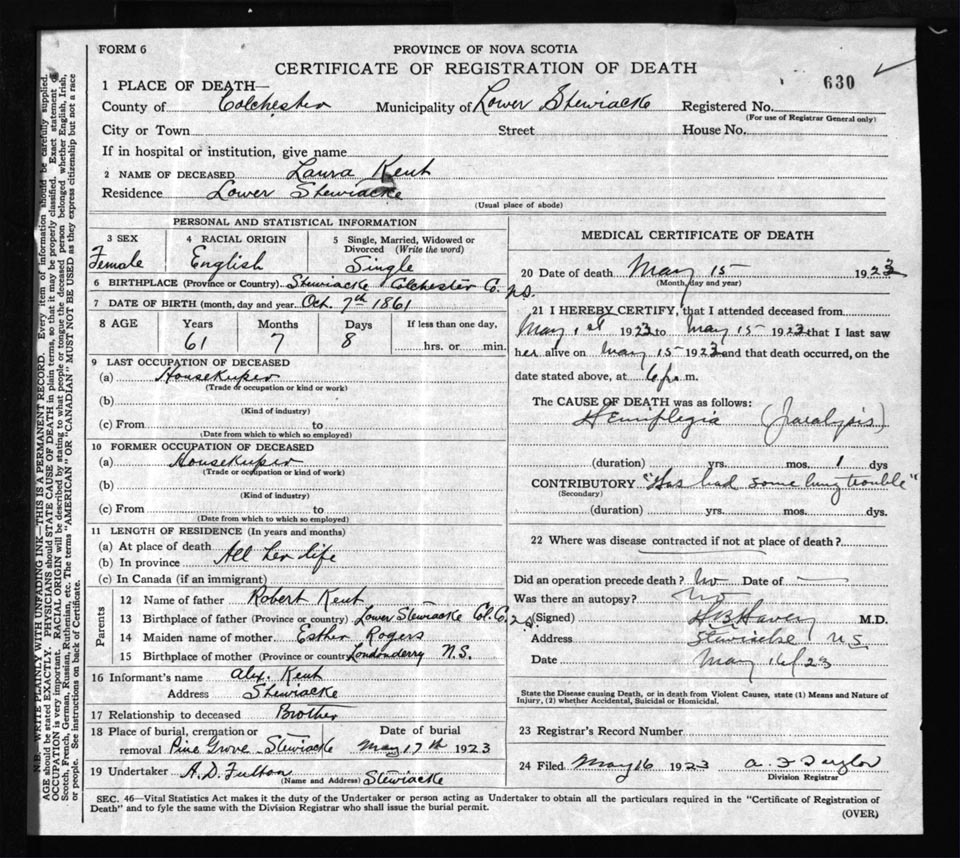 FORM 6
PROVINCE OF NOVA SCOTIA
CERTIFICATE OF REGISTRATION OF DEATH
630
1 PLACE OF DEATH—
County of Colchester Municipality of Lower Stewiacke Registered No.
(For use of Registrar General only)
City or Town Street House No.
If in hospital or institution, give name
2 NAME OF DECEASED Laura Kent
Residence Lower Stewiacke
(Usual place of abode)
PERSONAL AND STATISTICAL INFORMATION
3 SEX 4 RACIAL ORIGIN 5 Single, Married, Widowed or Divorced (Write the word)
Female English Single
6 BIRTHPLACE (Province or Country) Stewiacke Colchester Co. N.S.
7 DATE OF BIRTH (month, day and year) Oct. 7th 1861
8 AGE Years Months Days If less than one day,
61 7 8 hrs. or min.
9 LAST OCCUPATION OF DECEASED
(a) Housekeeper
(Trade or occupation or kind or work)
(b)
(Kind of industry)
(c) From to
(Date from which to which so employed)
10 FORMER OCCUPATION OF DECEASED
(a) Housekeeper
(Trade or occupation or kind of work)
(b)
(Kind of industry)
(c) From to
(Date from which to which so employed)
11 LENGTH OF RESIDENCE (In years and months)
(a) At place of death
(b) In province All her life
(c) In Canada (if an immigrant)
Parents
12 Name of father Robert Kent
13 Birthplace of father (Province or country) Lower Stewiacke Col. Co. N.S.
14 Maiden name of mother Esther Rogers
15 Birthplace of mother (Province or country) Londonderry N.S.
16 Informant's name Alex. Kent
Address Stewiacke
17 Relationship to deceased Brother
18 Place of burial, cremation or Date of burial
removal Pine Grove Stewiacke May 17th 1923
19 Undertaker A. D. Fulton (Name and Address) Stewiacke
MEDICAL CERTIFICATE OF DEATH
20 Date of death May 15 1923
(Month, day and year)
21 I HEREBY CERTIFY, that I attended deceased from
May 1st 1923 to May 15 1923 that I last saw
her alive on May 15 1923 and that death occurred, on the
date stated above, at 6 p. m.
The CAUSE OF DEATH was as follows:
Hemiplegia (Paralysis)
(duration) yrs. mos. 1 dys
CONTRIBUTORY "Has had some lung trouble"
(Secondary)
(duration) yrs. mos. dys.
22 Where was disease contracted if not at place of death?
Did an operation precede death? No Date of —
Was there an autopsy? No
(Signed) M.D.
Address Stewiacke N.S.
Date May 16/23
State the Disease causing Death, or in death from Violent Causes, state (1) Means and Nature of
Injury, (2) whether Accidental, Suicidal or Homicidal.
23 Registrar's Record Number
24 Filed May 16 1923 A. F. Taylor
Division Registrar
SEC. 46—Vital Statistics Act makes it the duty of the Undertaker or person acting as Undertaker to obtain all the particulars required in the "Certificate of Registration of
Death" and to fyle the same with the Division Registrar who shall issue the burial permit.
(OVER)
N.B. WRITE PLAINLY WITH UNFADING INK—THIS IS A PERMANENT RECORD. Every item of information should be carefully supplied.
AGE should be stated EXACTLY. PHYSICIANS should STATE CAUSE OF DEATH in plain terms, so that it may be properly classified. Exact statement of
OCCUPATION is very important. RACIAL ORIGIN will be described by stating to what people or tongue the deceased person belonged whether English, Irish,
Scotch, French, German, Russian, Ruthenian, etc. The terms "AMERICAN" or "CANADIAN" MUST NOT BE USED as they express citizenship but not a race
or people. See instructions on back of Certificate.